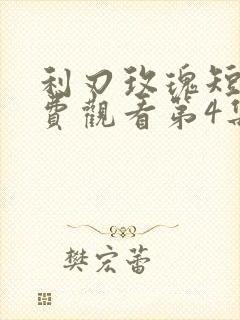 利刃玫瑰短
費觀看第4集
樊宏蕾